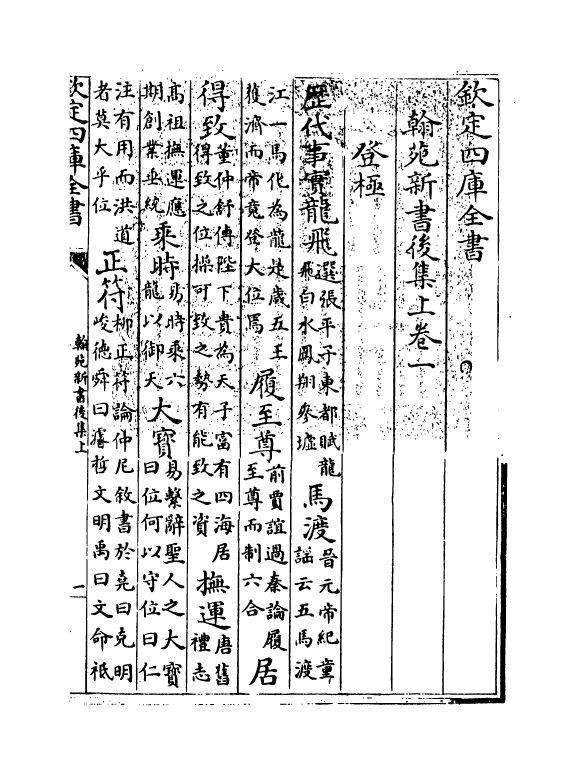 欽定四庫全書
翰苑新書後集上卷一
登極
歴代事實龍飛選張平子東都賦龍飛白水鳳翔參墟馬渡晉元帝紀童謡云五馬渡
江一馬化為龍是歳五王獲濟而帝竟登大位焉履至尊前賈誼過秦論履至尊而制六合居
得致董仲舒傳陛下貴為天子富有四海居得致之位操可致之勢有能致之資撫運唐舊禮志
高祖撫運應期創業垂統乘時易時乘六龍以御天大寳易繫辭聖人之大寳曰位何以守位曰仁
注有用而洪道者莫大乎位正符柳正符論仲尼敘書於堯曰克明峻德舜曰濬哲文明禹曰文命祗
欽定四庫全書
翰苑新書後集上
一